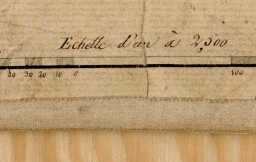 Echelle d'un à 2,500
40 30 20 10 0 100